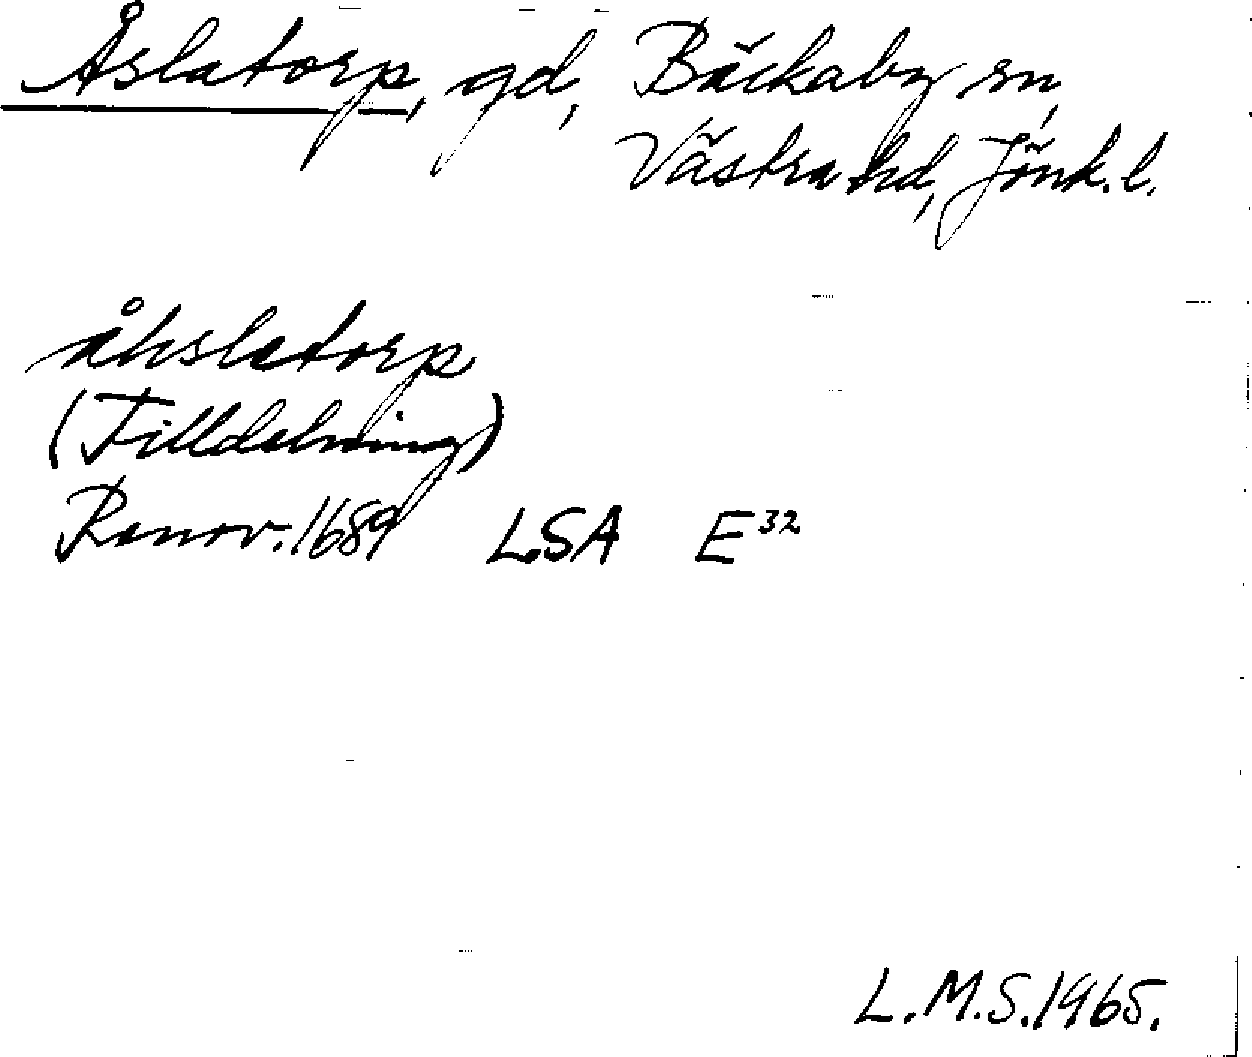 Åslatorp, gd, Bäckaby sn,
Västra hd, Jönk. l.
åhslatorp
(Tilldelning)
Renov. 1689 LSA E32
L.M.S. 1965.